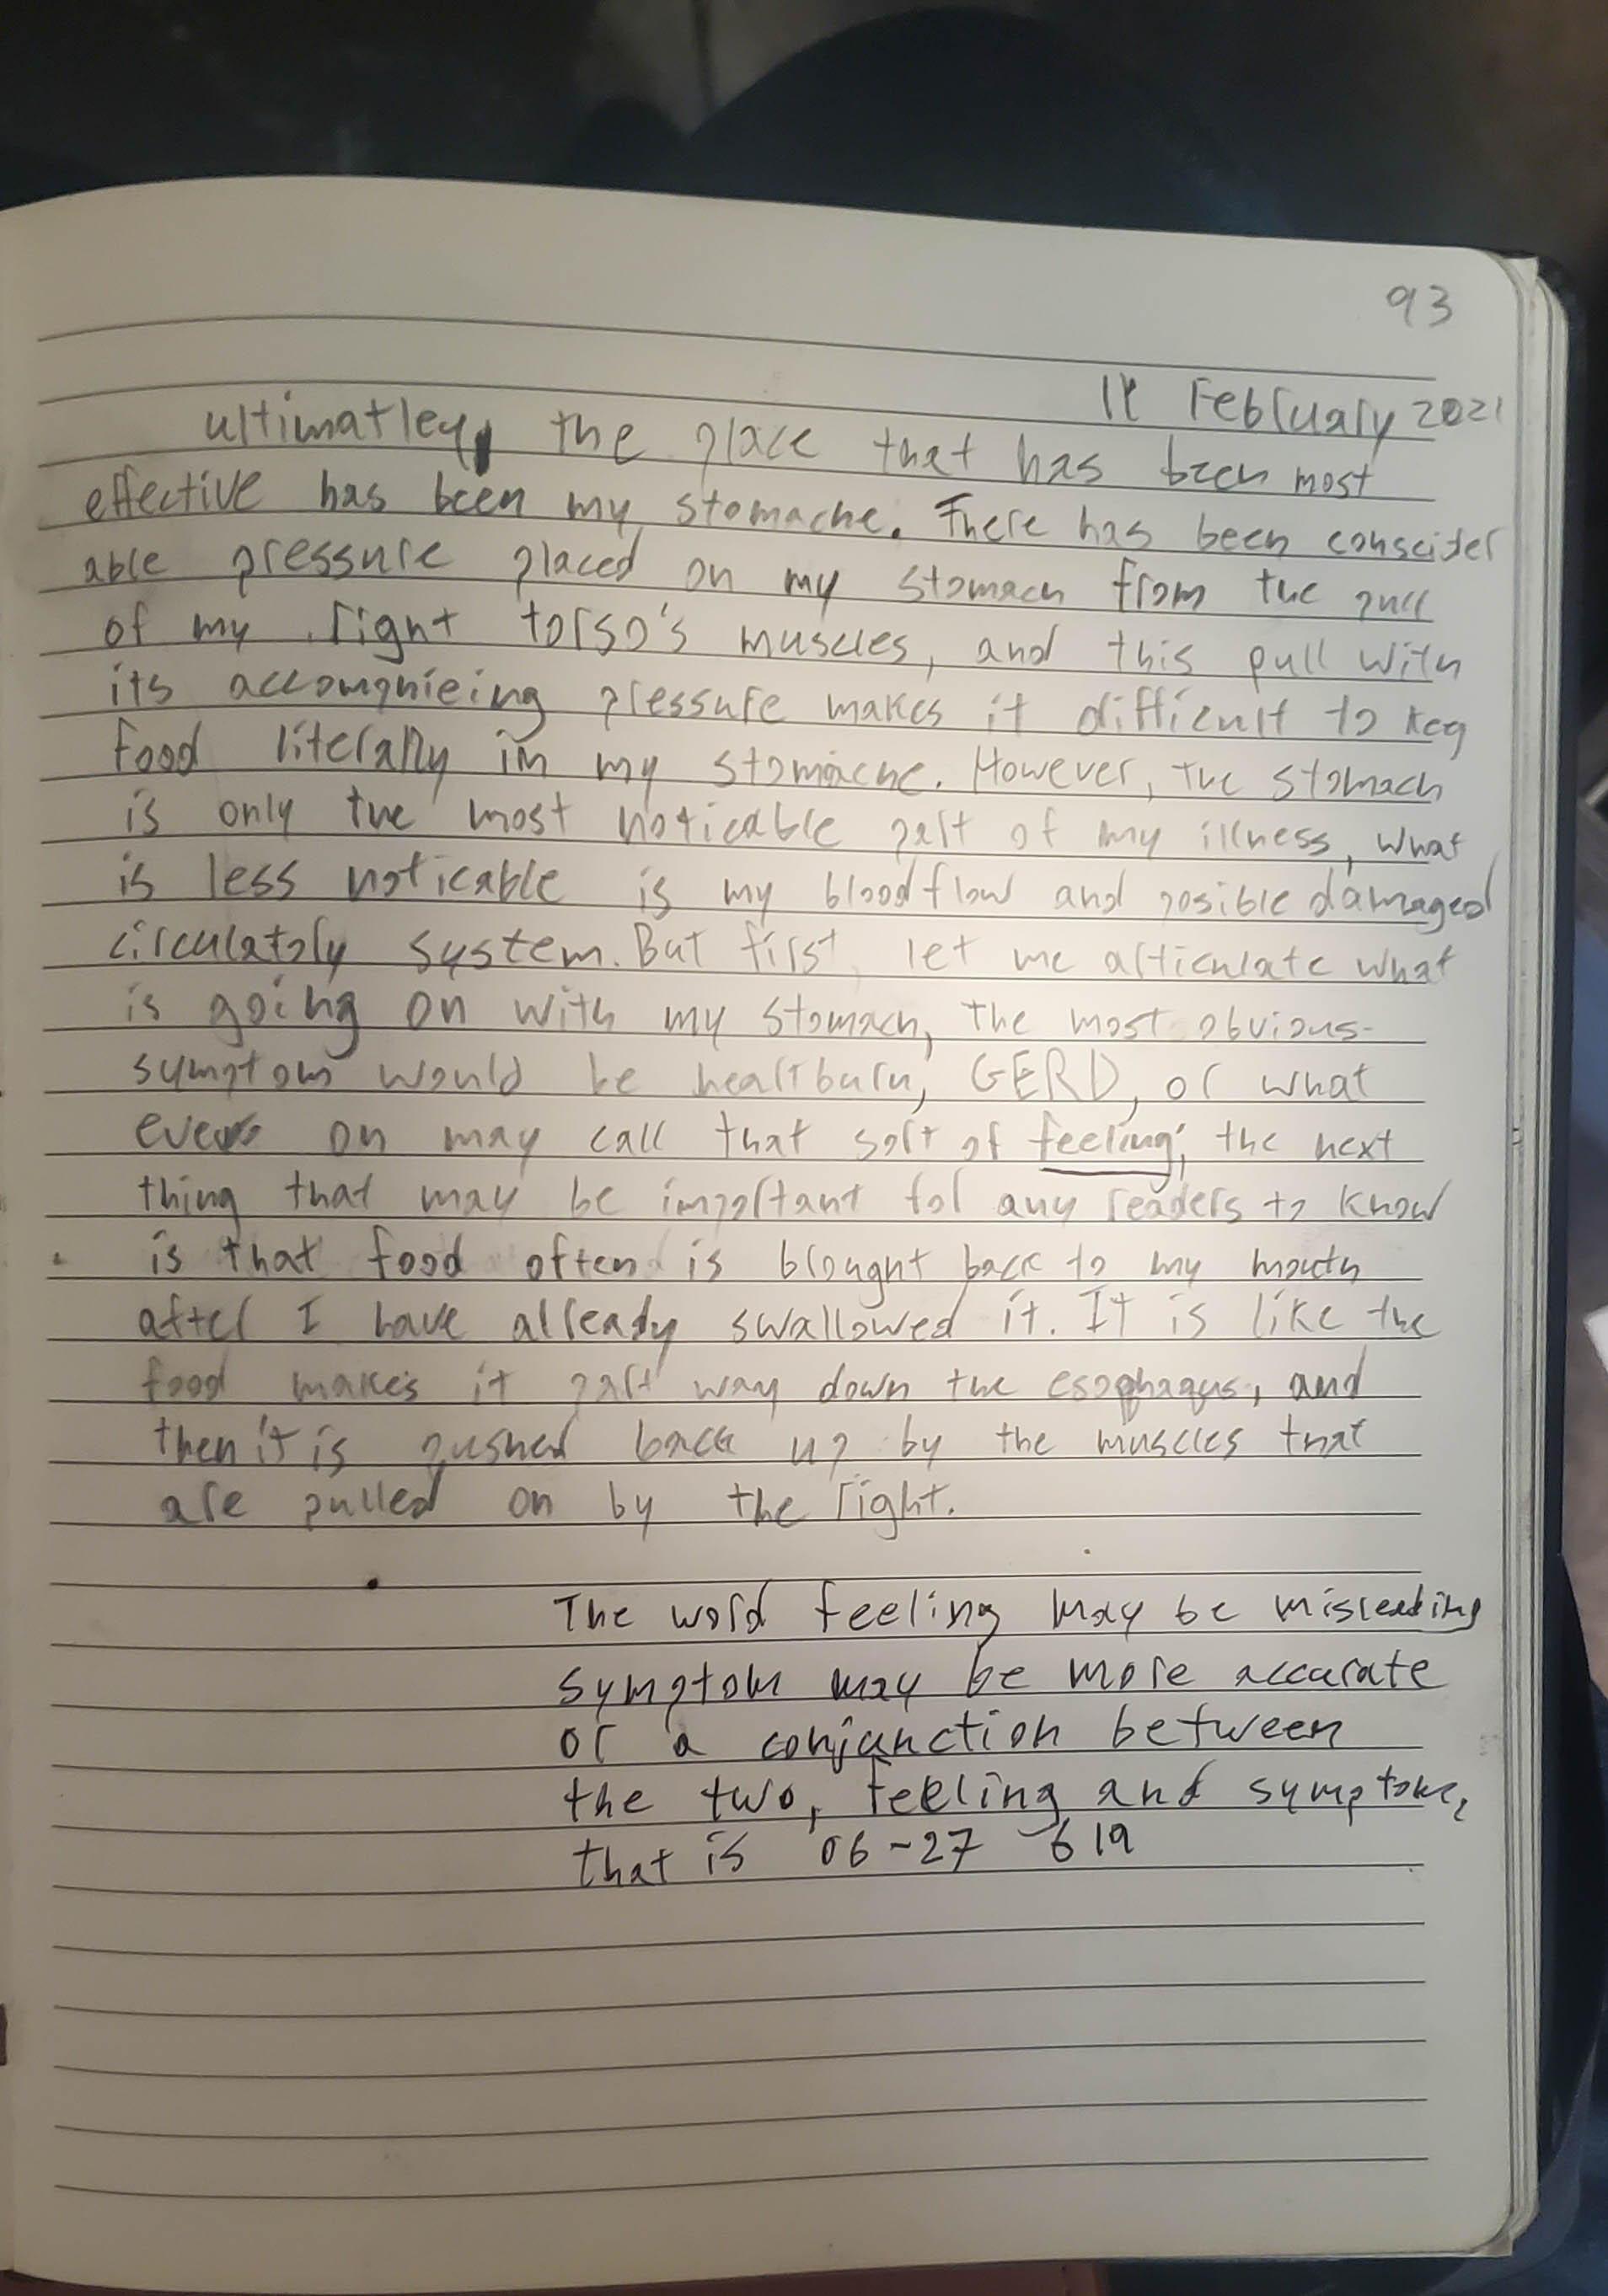 93
11 February 2021
ultimatley, the place that has been most
effective has been my stomache. There has been conscider
able pressure placed on my stomach from the pull
of my right torso's muscles, and this pull with
its accompnieing pressure makes it difficult to keep
food literally in my stomache. However, the stomach
is only the most noticable part of my illness, what
is less noticable is my bloodflow and posible damaged
circulatory system. But first, let me articulate what
is going on with my stomach, the most obvious
symptom would be heartburn, GERD, or what
ever on may call that sort of feeling; the next
thing that may be important for any readers to know
is that food often is brought back to my mouth
after I have already swallowed it. It is like the
food makes it part way down the esophagus, and
then it is pushed back up by the muscles that
are pulled on by the right.
The word feeling may be misleading
symptom may be more accurate
or a conjunction between
the two, feeling and symptom,
that is 06-27 619